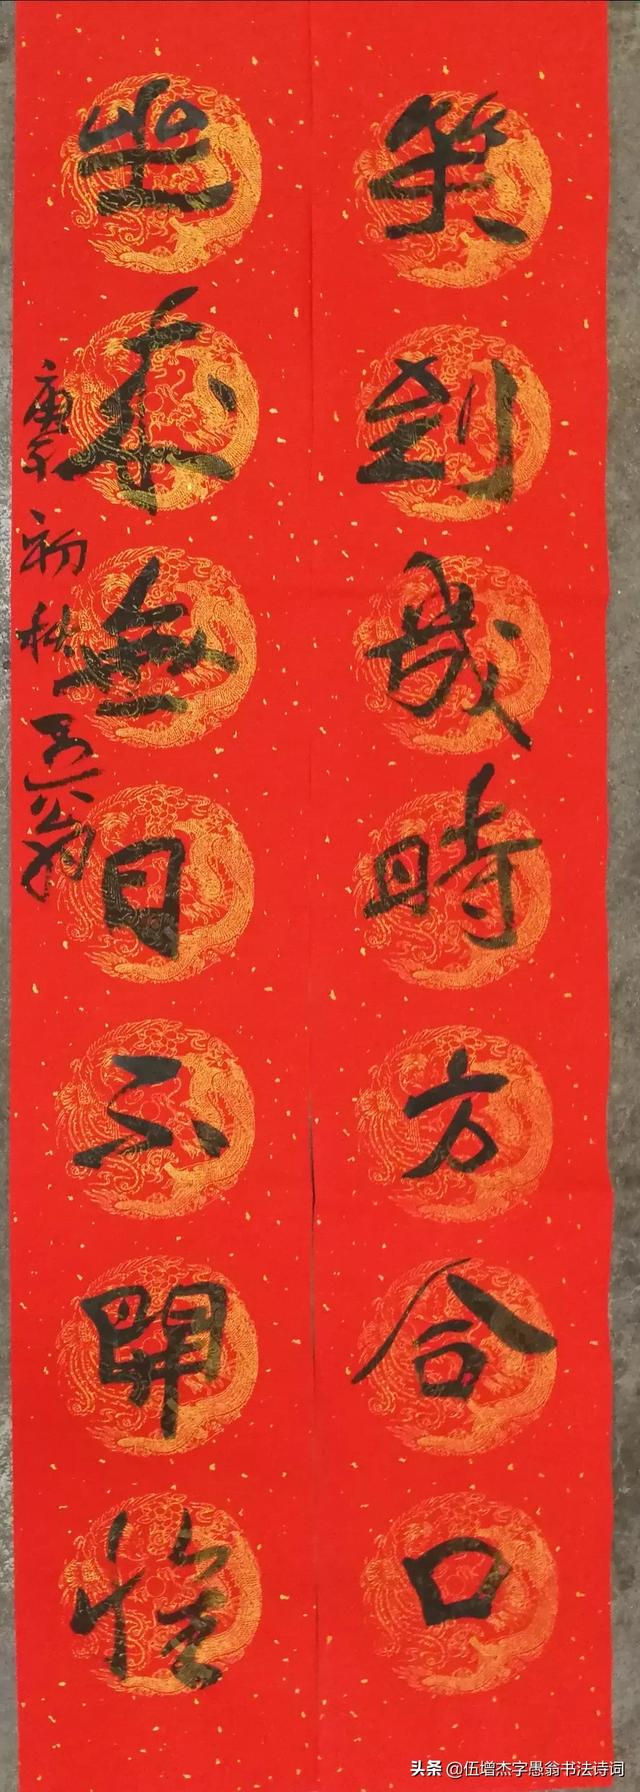 笑到幾時方合口
坐來無日不開懷
庚子初秋愚翁
头条 @伍增杰字愚翁书法诗词